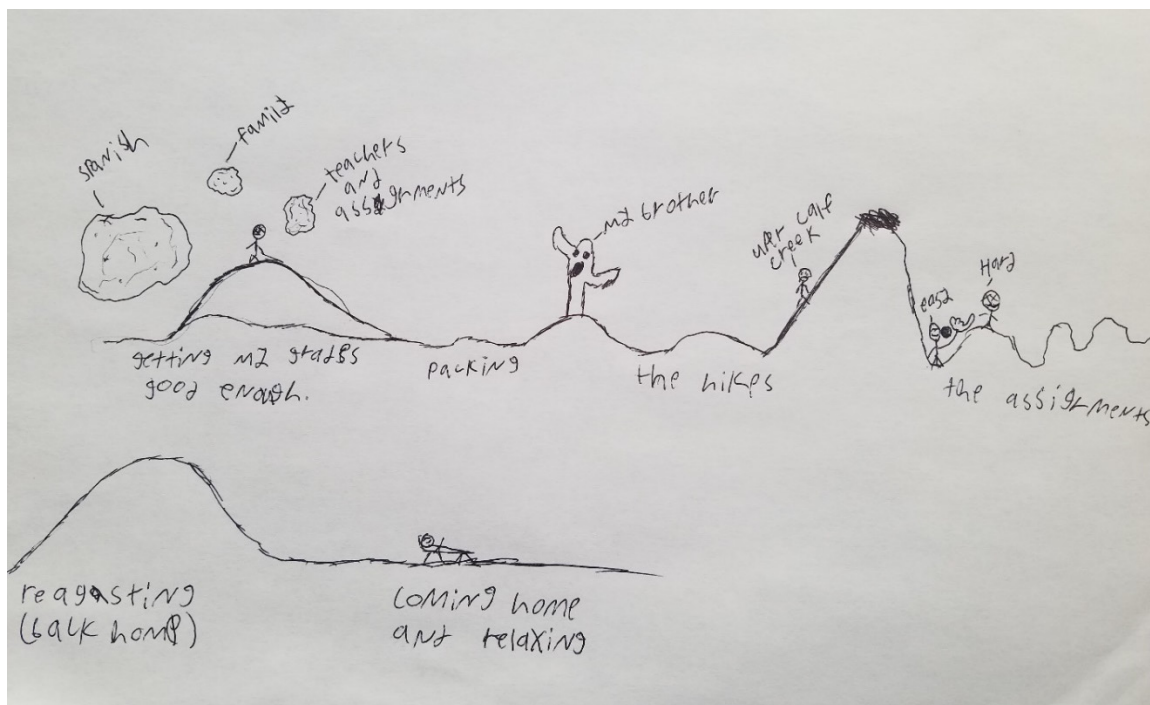 spanish
family
teachers
and
assignments
my brother
uper calf
creek
easy
Hard
getting my grades
good enough.
packing
the hikes
the assignments
reagasting
(back home)
coming home
and relaxing